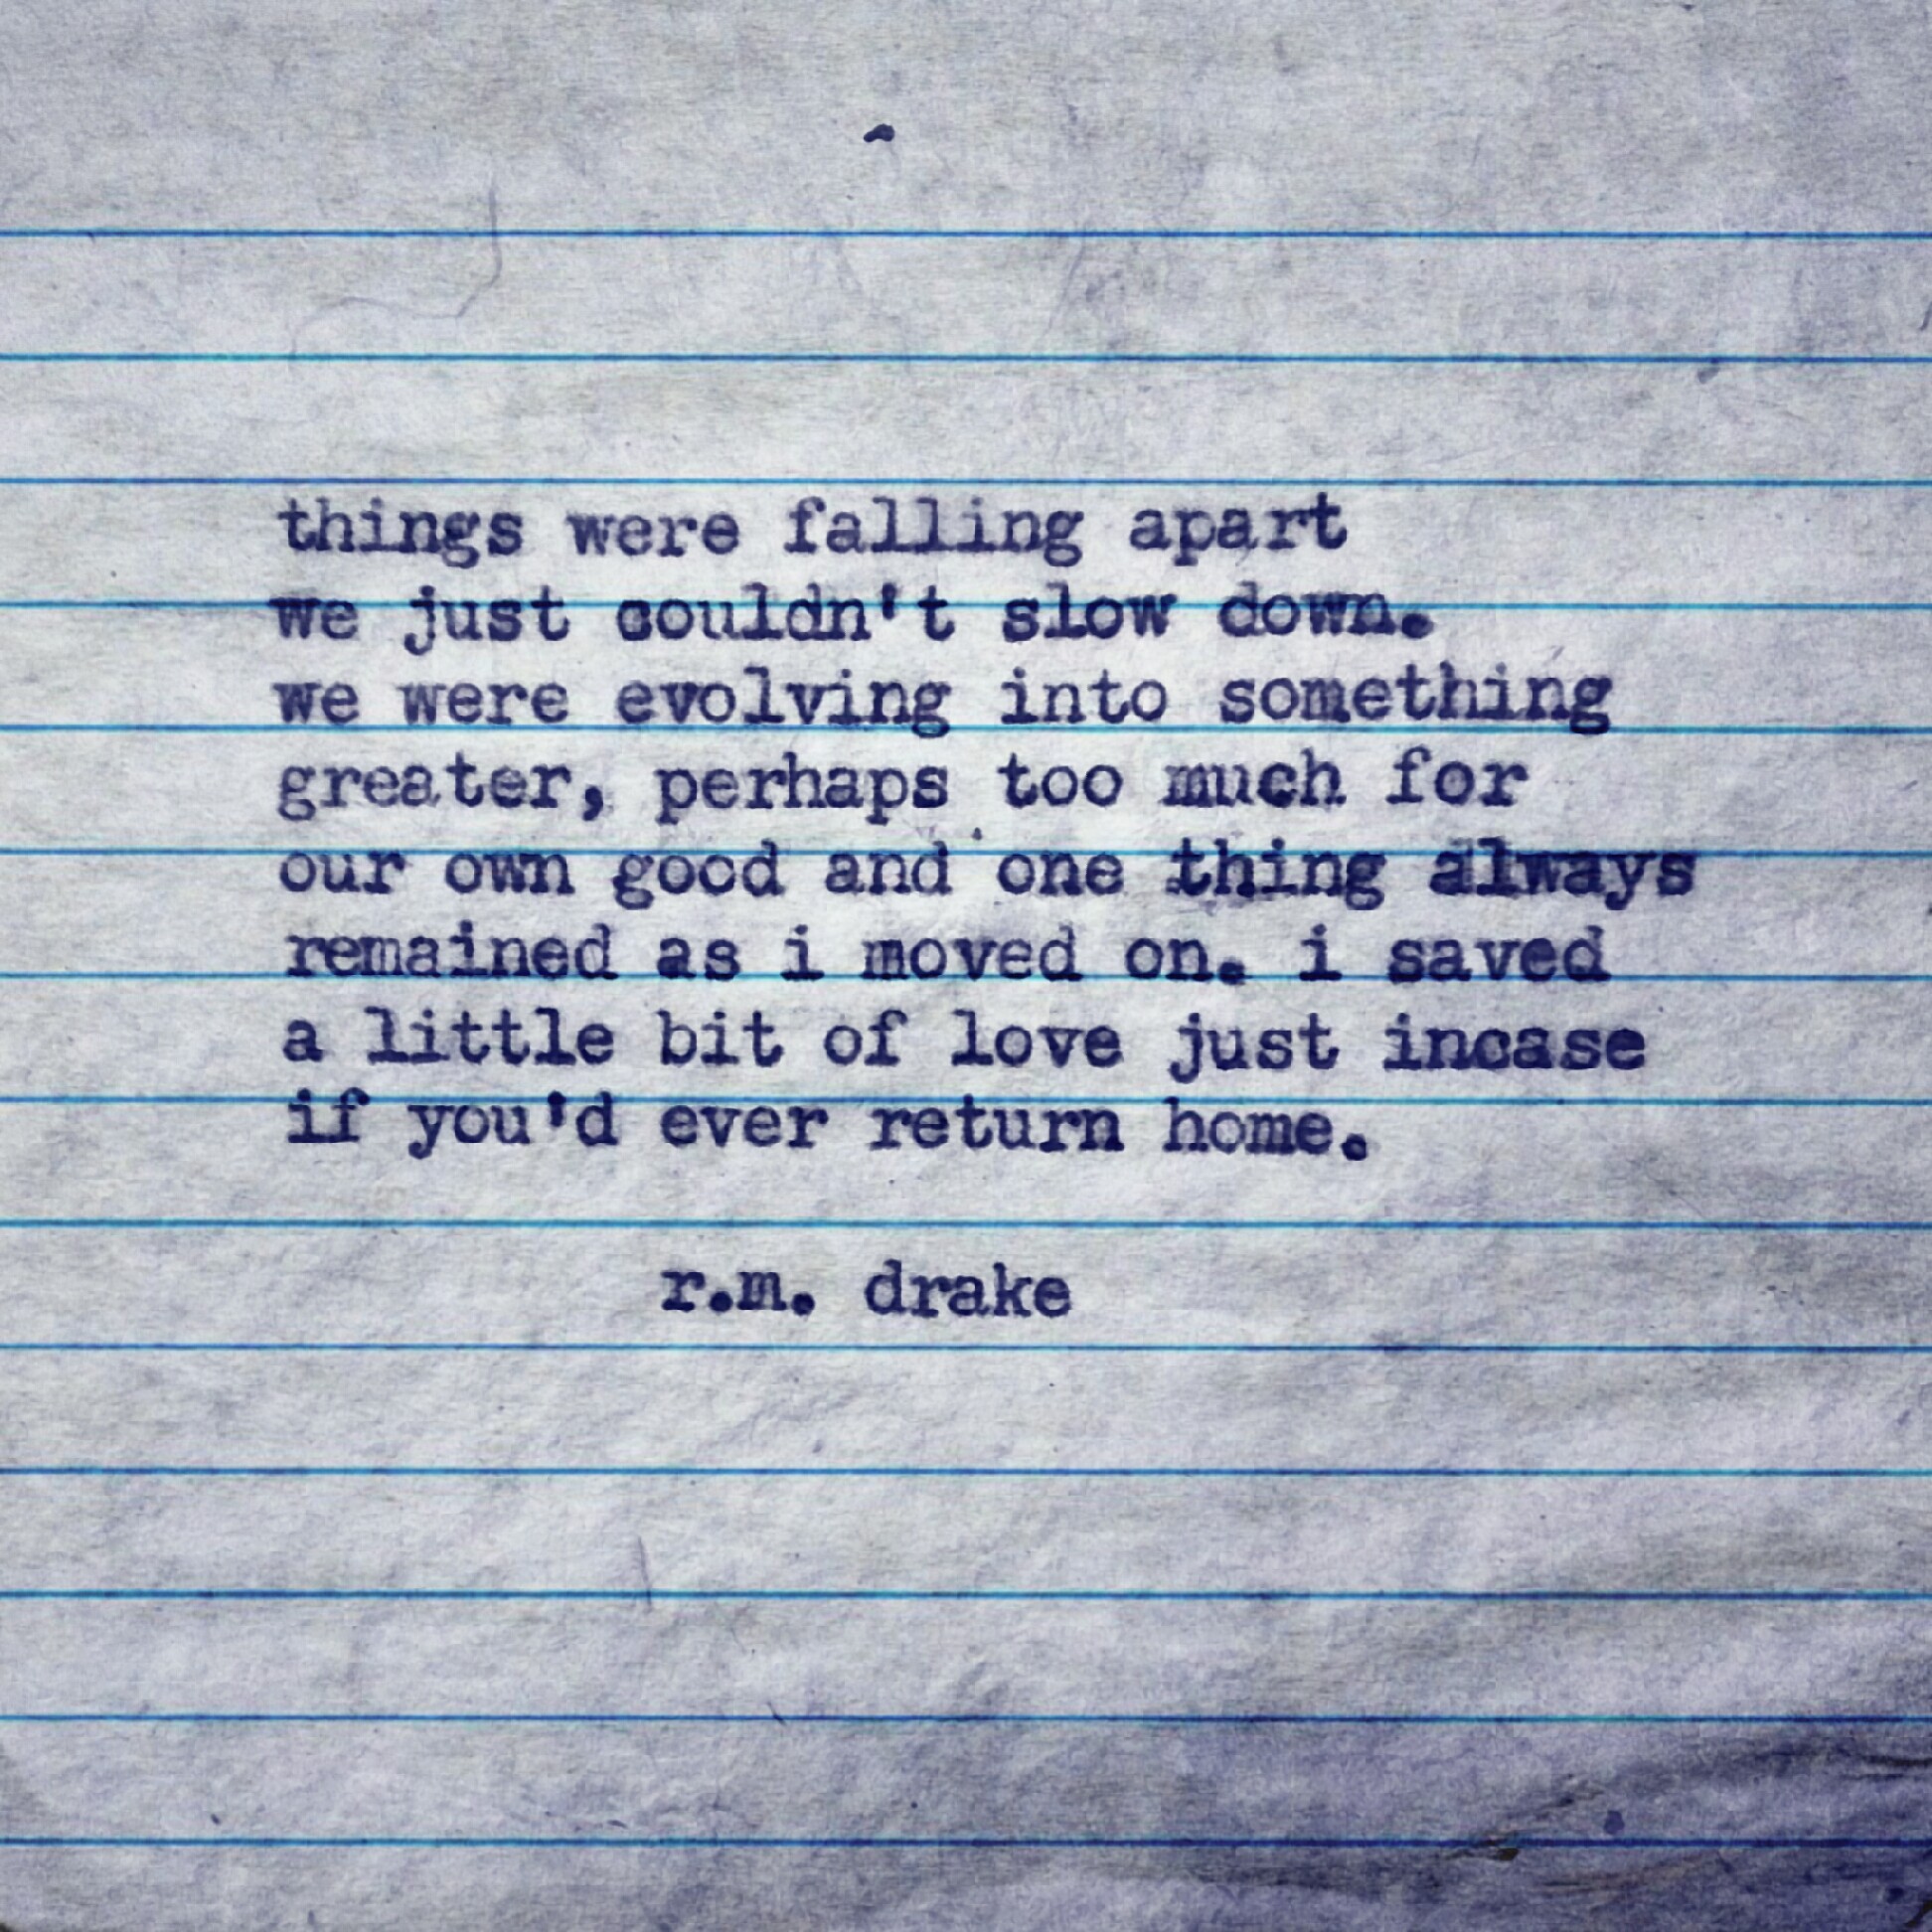 things were falling apart
we just couldn't slow down.
we were evolving into something
greater, perhaps too much for
our own good and one thing always
remained as i moved on. i saved
a little bit of love just incase
if you'd ever return home.
r.m. drake